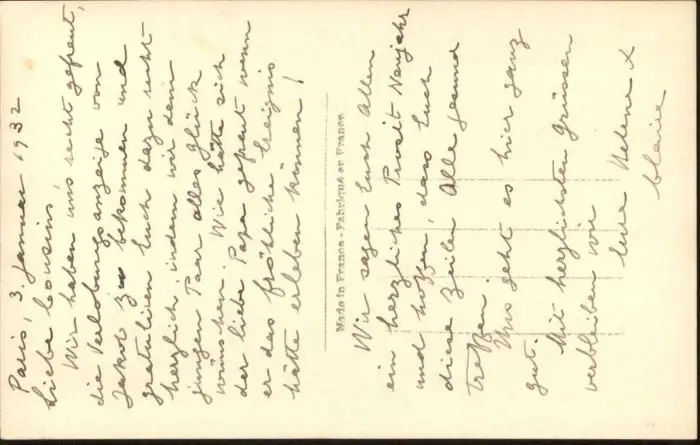 Paris, 3. Januar 1932
Liebe Cousins,
Wir haben uns recht gefreut,
die Verlobungsanzeige von
zu bekommen und
gratulieren Euch dazu recht
herzlich, indem wir dem
jungen Paar alles Glück
wünschen. Wie hätte sich
der liebe Papa gefreut wenn
er das fröhliche Ereignis
hätte erleben können!
Made in France - Fabriqué en France
Wir sagen Euch Allen
ein herzliches Prosit Neujahr
und hoffen, dass Euch
diese Zeilen Alle gesund
treffen.
Uns geht es hier ganz
gut.
Mit herzlichsten Grüssen
verbleiben wir
Eure Helene &
Claire